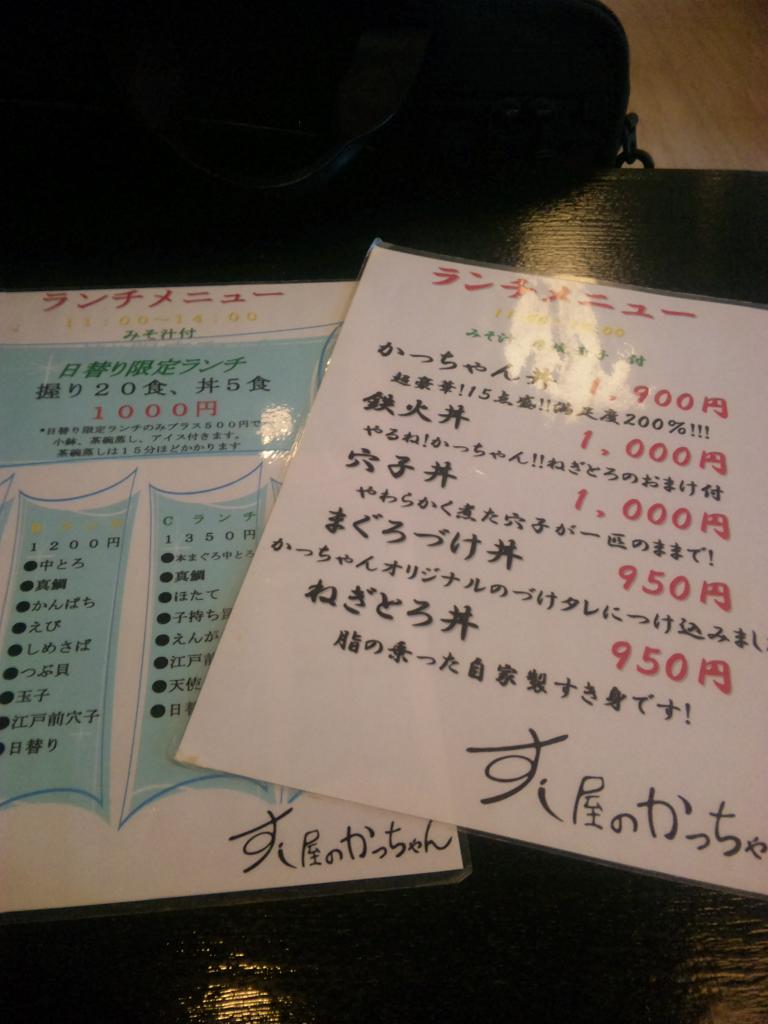 ランチメニュー
11:00~14:00
みそ汁付
日替り限定ランチ
握り20食、丼5食
1000円
*日替り限定ランチのみプラス500円で
小鉢、茶碗蒸し、アイス付きます。
茶碗蒸しは15分ほどかかります
1200円
●中とろ
●真鯛
●かんぱち
●えび
●しめさば
●つぶ貝
●玉子
●江戸前穴子
●日替り
Cランチ
1350円
●本まぐろ中とろ
●真鯛
●ほたて
●子持ち
●えんが
●江戸前
●天使
●日替
すし屋のかっちゃん
ランチメニュー
みそ汁 付
かっちゃん丼 1,900円
超豪華!15点盛!!満足度200%!!!
鉄火丼 1,000円
やるね!かっちゃん!!ねぎとろのおまけ付
穴子丼 1,000円
やわらかく煮た穴子が一匹のままで!
まぐろづけ丼 950円
かっちゃんオリジナルのづけタレにつけ込みまし
ねぎとろ丼 950円
脂の乗った自家製すき身です!
すし屋のかっちゃ